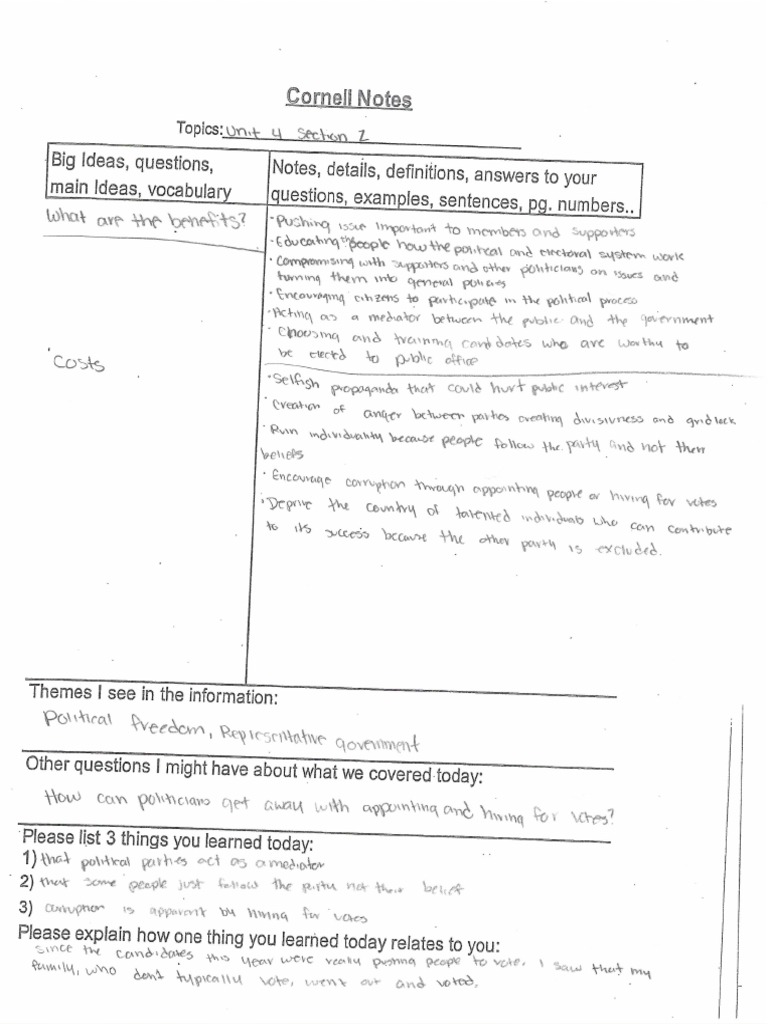 Cornell Notes
Topics: Unit 4 Section 2
Big Ideas, questions,
main Ideas, vocabulary
Notes, details, definitions, answers to your
questions, examples, sentences, pg. numbers..
What are the benefits?
·Pushing issue important to members and supporters
·Educating the people how the political and electoral system work
·Compromising with supporters and other politicians on issues and
turning them into general policies
·Encouraging citizens to participate in the political process
·Acting as a mediator between the public and the government
·Choosing and training candidates who are worthy to
be elected to public office
·Costs
·Selfish propaganda that could hurt public interest
·Creation of anger between parties creating divisivness and gridlock
·Ruin individuality because people follow the party and not their
beliefs
·Encourage corruption through appointing people or hiring for votes
·Deprive the country of talented individuals who can contribute
to its success because the other party is excluded.
Themes I see in the information:
Political freedom, Representative government
Other questions I might have about what we covered today:
How can politicians get away with appointing and hiring for votes?
Please list 3 things you learned today:
1) that political parties act as a mediator
2) that some people just follow the party not their belief
3) corruption is apparent by hiring for votes
Please explain how one thing you learned today relates to you:
since the candidates this year were really pushing people to vote. I saw that my
family, who dont typically vote, went out and voted.